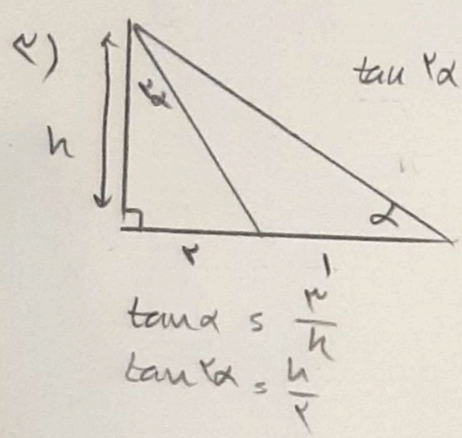 ۲)
tan ۲α
h
۲α
α
۲
۱
tan α = ۳/h
tan ۲α = h/۲